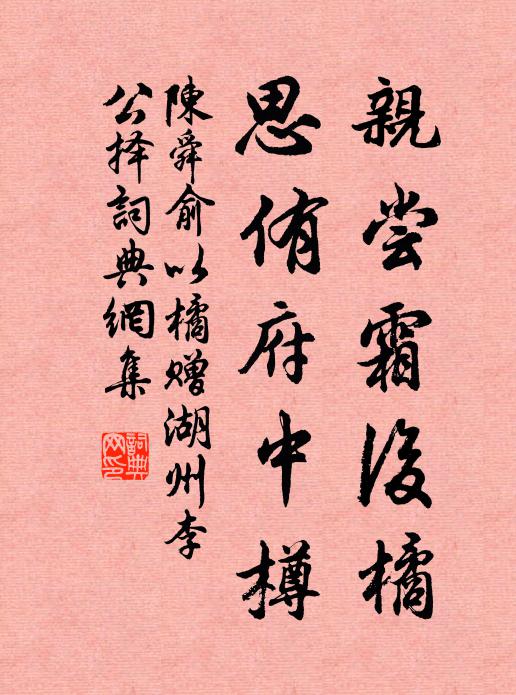 親尝霜後橘
思侑府中樽
陳舜俞以橘赠湖州李
公择詞典網集
詞典
网印